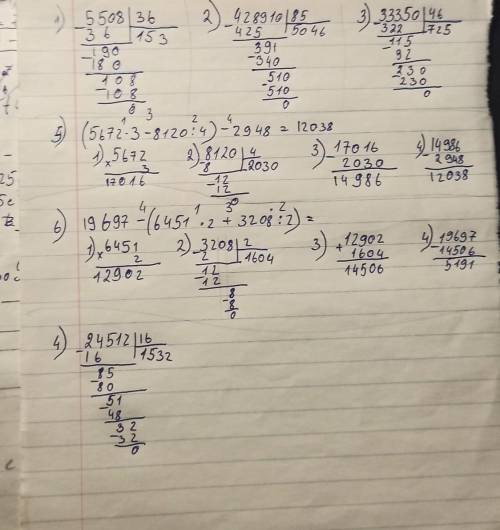 1) 5508 | 36
36 | 153
190
180
108
108
0
2) 428910 | 85
425 | 5046
391
340
510
510
0
3) 33350 | 46
322 | 725
115
92
230
230
0
5) (5672·3-8120:4)-2948=12038
1) ×5672
3
17016
2) 8120 | 4
8 | 2030
12
12
0
3) -17016
2030
14986
4) 14986
-2948
12038
6) 19697-(6451·2+3208:2)=
1) ×6451
2
12902
2) -3208 | 2
2 | 1604
12
12
8
8
0
3) +12902
1604
14506
4) 19697
-14506
5191
4) -24512 | 16
16 | 1532
85
80
51
48
32
32
0